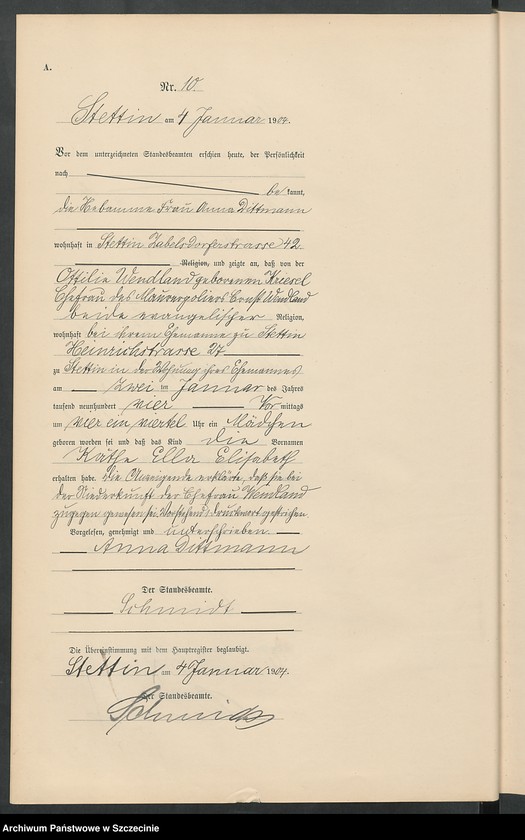 A.
Nr. 10.
Stettin am 4 Januar 1904.
Vor dem unterzeichneten Standesbeamten erschien heute, der Persönlichkeit
nach
be kannt,
die Hebamme Frau Anna Dittmann
wohnhaft in Stettin Zabelsdorferstrasse 42
Religion, und zeigte an, daß von der
Ottilie Wendland geborenen Kriesel
Ehefrau des Maurerpoliers Ernst Wendland
beide evangelischer Religion,
wohnhaft bei ihrem Ehemanne zu Stettin
Heinrichstrasse 27
zu Stettin in der Wohnung ihres Ehemannes
am zwei ten Januar des Jahres
tausend neunhundert vier Vor mittags
um vier ein viertel Uhr ein Mädchen
geboren worden sei und daß das Kind die Vornamen
Käthe Ella Elisabeth
erhalten habe. Die Anzeigende erklärte, daß sie bei
der Niederkunft der Ehefrau Wendland
zugegen gewesen sei. Vorstehend 1 Druckwort gestrichen
Vorgelesen, genehmigt und unterschrieben
Anna Dittmann
Der Standesbeamte.
Schmidt
Die Übereinstimmung mit dem Hauptregister beglaubigt.
Stettin am 4 Januar 1904.
Der Standesbeamte.
Schmidt
Archiwum Państwowe w Szczecinie